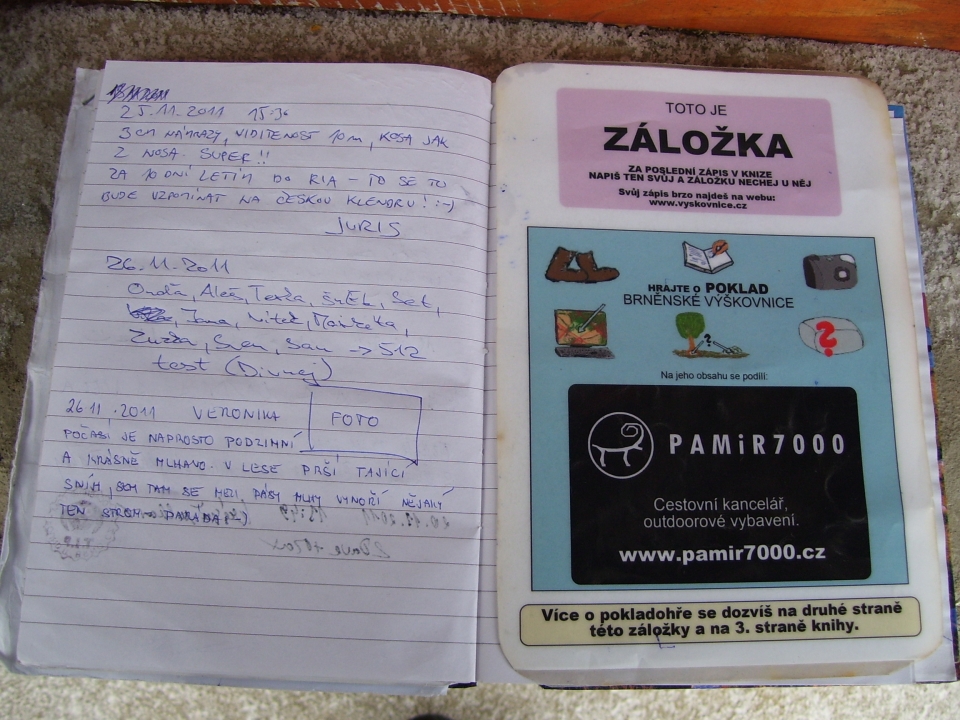 25.11.2011 15:36
3CM NÁMRAZY, VIDITENOST 10m, KOSA JAK
Z NOSA. SUPER!!
ZA 10 DNÍ LETÍM DO RIA – TO SE TU
BUDE VZPOMÍNAT NA ČESKOU KLENDRU! :-)
JURIS
26.11.2011
Ondra, Aleš, Terka, ŠnEk, Set,
Jana, Vítek, Markéta,
Zuzka, Sven, Sam → 512
test (Divnej)
26 11. 2011 VERONIKA
FOTO
POČASÍ JE NAPROSTO PODZIMNÍ
A KRÁSNĚ MLHAVO. V LESE PRŠÍ TAJÍCÍ
SNÍH, SEM TAM SE MEZI PÁSY MLHY VYNOŘÍ NĚJAKÝ
TEN STROM. PARÁDA :)
TOTO JE
ZÁLOŽKA
ZA POSLEDNÍ ZÁPIS V KNIZE
NAPIŠ TEN SVŮJ A ZÁLOŽKU NECHEJ U NĚJ
Svůj zápis brzo najdeš na webu:
www.vyskovnice.cz
HRAJTE O POKLAD
BRNĚNSKÉ VÝŠKOVNICE
Na jeho obsahu se podílí:
PAMiR7000
Cestovní kancelář,
outdoorové vybavení.
www.pamir7000.cz
Více o pokladohře se dozvíš na druhé straně
této záložky a na 3. straně knihy.